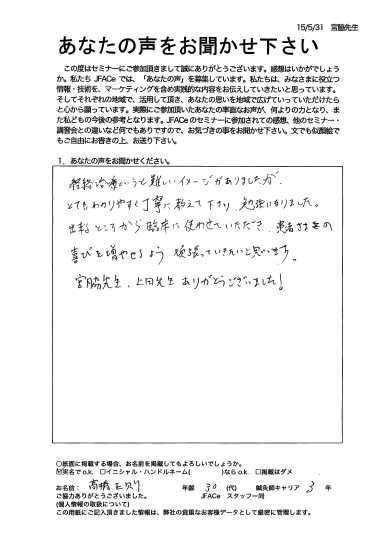 15/5/31 宮脇先生
あなたの声をお聞かせ下さい
この度はセミナーにご参加頂きまして誠にありがとうございます。感想はいかがでしょう
か。私たち JFACe では、「あなたの声」を募集しています。私たちは、みなさまに役立つ
情報・技術を、マーケティングを含め実践的な内容をお伝えしていきたいと思っています。
そしてそれぞれの地域で、活用して頂き、あなたの思いを地域で広げていっていただけたら
と心から願っています。実際にご参加頂いたあなたの率直なお声が、何よりの力となり、ま
た私どもの今後の参考となります。JFACeのセミナーに参加されての感想、他のセミナー・
講習会との違いなど何でもありですので、お気づきの事をお聞かせ下さい。文でも似顔絵で
もご自由にお書きの上、お送り下さい。
1．あなたの声をお聞かせください。
経絡治療というと難しいイメージがありましたが、
とてもわかりやすく丁寧に教えて下さり、勉強になりました。
出来るところから臨床に使わせていただき、患者さまの
喜びを増やせるよう 頑張っていきたいと思います。
宮脇先生、上田先生 ありがとうございました!
○紙面に掲載する場合、お名前を掲載してもよろしいでしょうか。
☑実名でo.k. □イニシャル・ハンドルネーム( )ならo.k. □掲載はダメ
お名前： 高橋 正則 年齢 30 (代) 鍼灸師キャリア 3 年
ご協力ありがとうございました。 JFACe スタッフ一同
(個人情報の取扱について)
この用紙にご記入頂きました情報は、弊社の貴重なお客様データとして厳密に管理します。